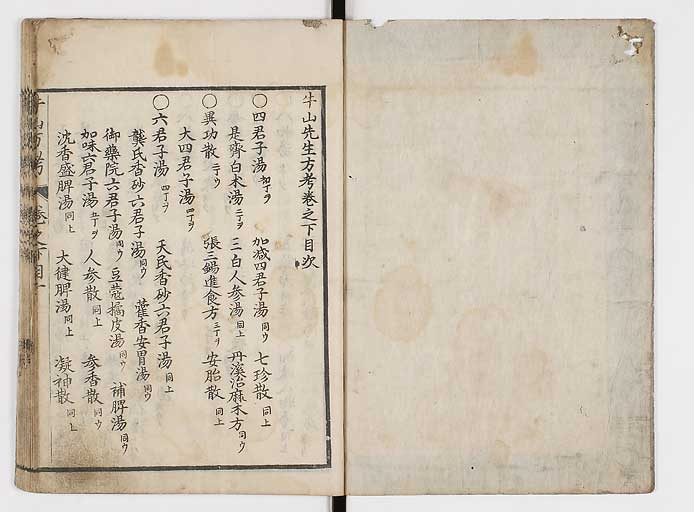 牛山先生方考巻之下目次
〇四君子湯 初丁ヲ 加減四君子湯 同ウ 七珍散 同上
是齊白朮湯 二丁ヲ 三白人参湯 同上 丹溪治麻木方 同ウ
〇異功散 三丁ヲ 張三錫進食方 三丁ヲ 安胎散 同上
大四君子湯 四丁ヲ
〇六君子湯 四丁ヲ 天民香砂六君子湯 同上
龔氏香砂六君子湯 同ウ 藿香安胃湯 同ウ
御藥院六君子湯 同ウ 豆蔲橘皮湯 同ウ 補脾湯 同ウ
加味六君子湯 五丁ヲ 人参散 同上 参香散 同ウ
沈香盛脾湯 同上 大健脾湯 同上 凝神散 同上
牛山方考 巻之下目 一